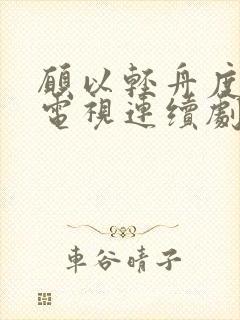 願以輕舟度
電視連續劇
車谷晴子